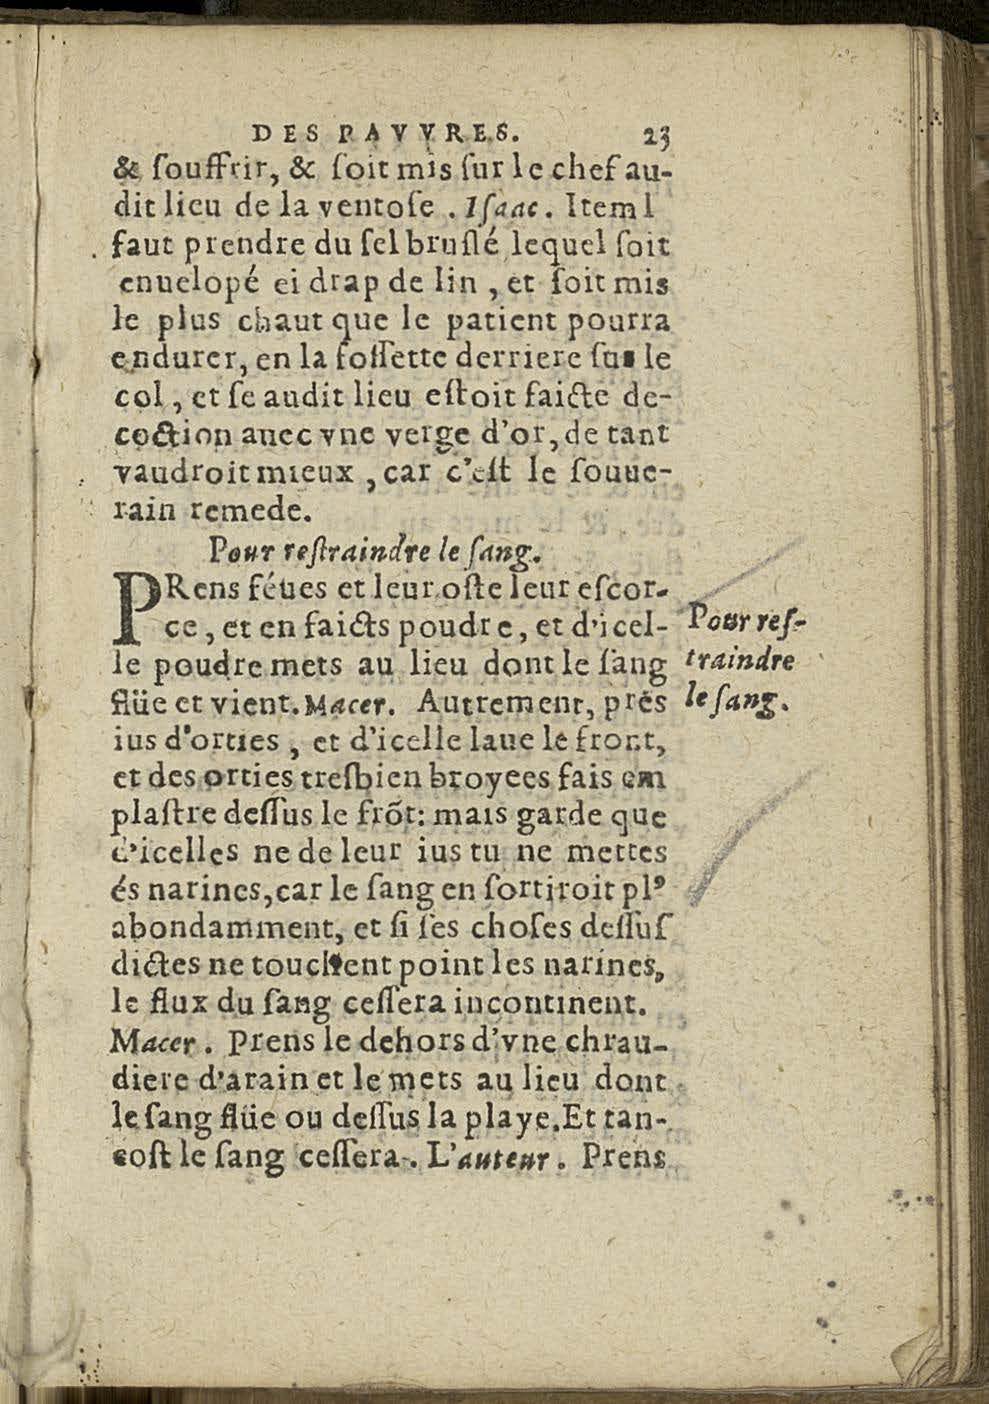 DES PAVVRES. 23
& ſouffrir, & ſoit mis ſur le chef au-
dit lieu de la ventoſe . Iſaac. Item l
faut prendre du ſel bruſlé lequel ſoit
enuelopé ei drap de lin , et ſoit mis
le plus chaut que le patient pourra
endurer, en la foſſette derriere ſus le
col , et ſe audit lieu eſtoit faicte de-
coction auec vne verge d'or, de tant
vaudroit mieux , car c'eſt le ſouue-
rain remede.
Pour reſtraindre le ſang.
PRens féues et leur oſte leur eſcor-
ce , et en faicts poudre, et d'icel-
le poudre mets au lieu dont le ſang
flüe et vient. Macer. Autrement, prēs
ius d'orties , et d'icelle laue le front,
et des orties treſbien broyees fais em
plaſtre deſſus le frõt: mais garde que
d'icelles ne de leur ius tu ne mettes
és narines, car le ſang en ſortiroit plꝰ
abondamment, et ſi ſes choſes deſſuſ
dictes ne touchent point les narines,
le flux du ſang ceſſera incontinent.
Macer . Prens le dehors d'vne chrau-
diere d'arain et le mets au lieu dont
le ſang flüe ou deſſus la playe. Et tan-
toſt le ſang ceſſera . L'auteur . Prens
Pour reſ-
traindre
le ſang.